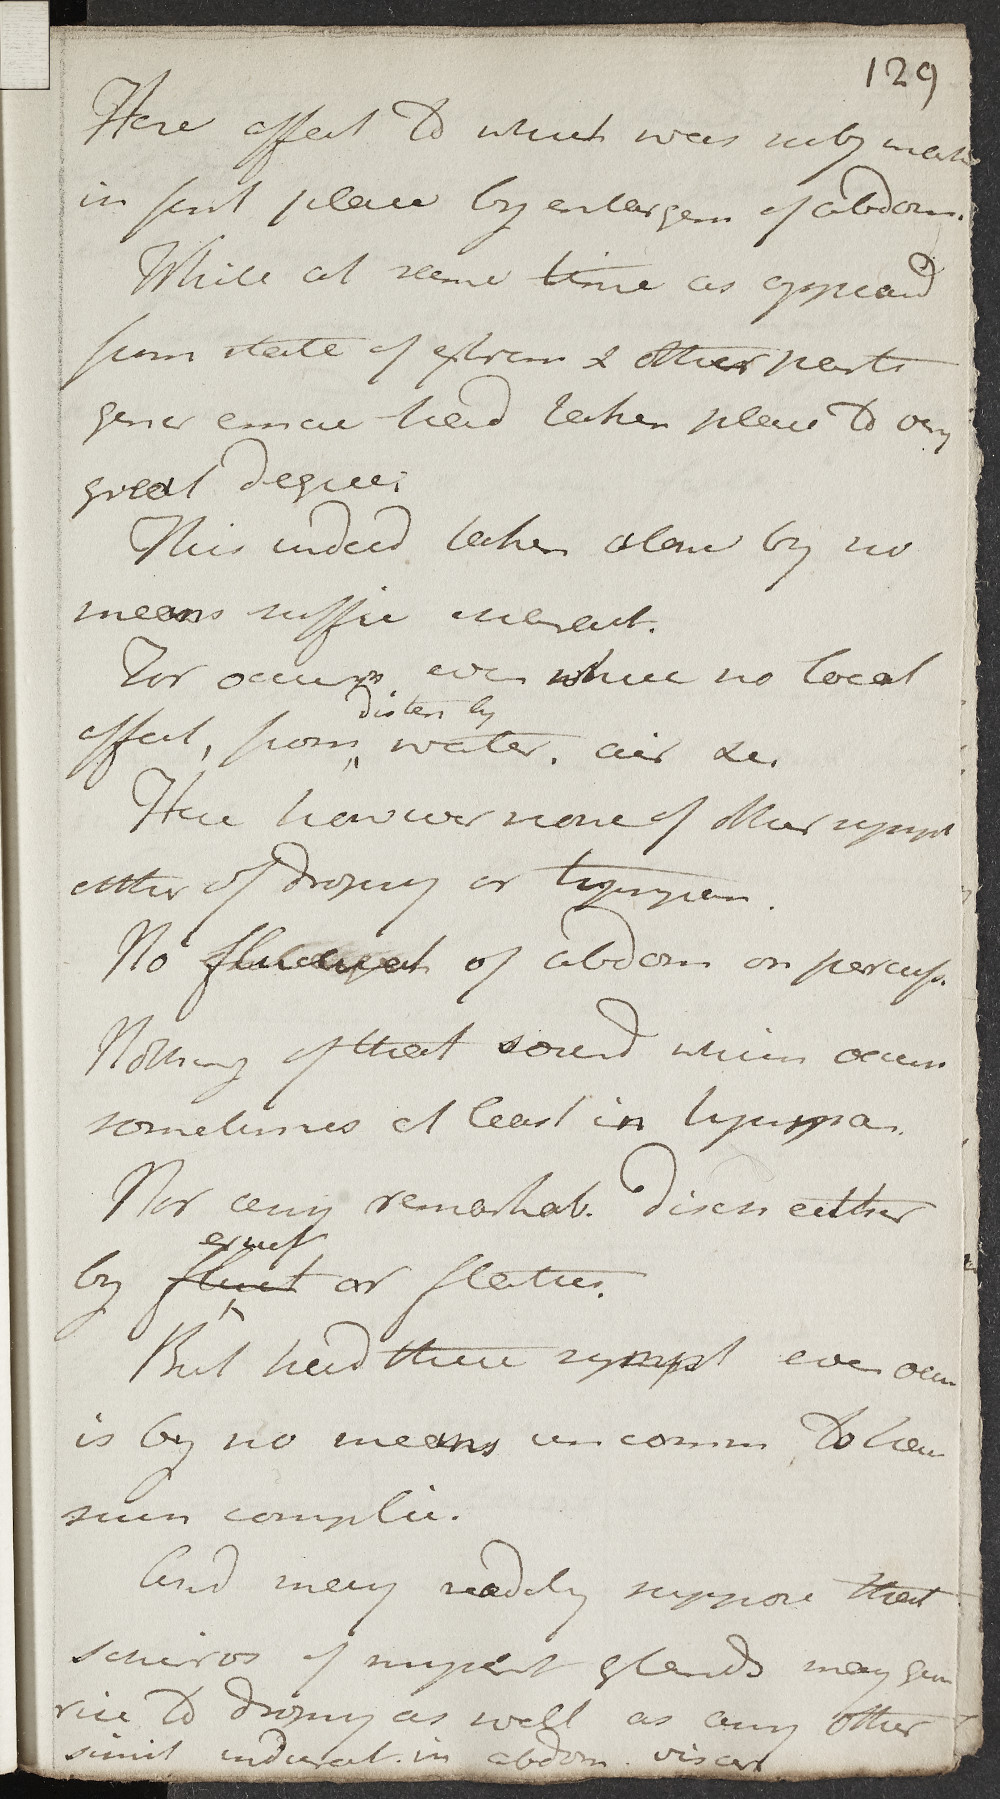 129
Here affect to which was subj mark
in first place by enlargem of abdom.
While at same time as appeard
from state of extrem & other parts
gener emac had taken place to very
great degree;
This indeed taken alone by no
means suffic
For occurs even where no local
disten by
affect, from water, air &c.
Here however none of other sympt
either of dropsy or tympan.
No fluctuat of abdom on percuss.
Nothing of that sound which occurs
sometimes at least in tympan.
Nor any remarkab. disch either
eruct
by fluct or flatus.
But had these sympt even occur
is by no means uncomm to have
seen complic.
And may readily suppose that
scirros of glands may give
rise to dropsy as well as any other
simil indurat. in abdom. viscer